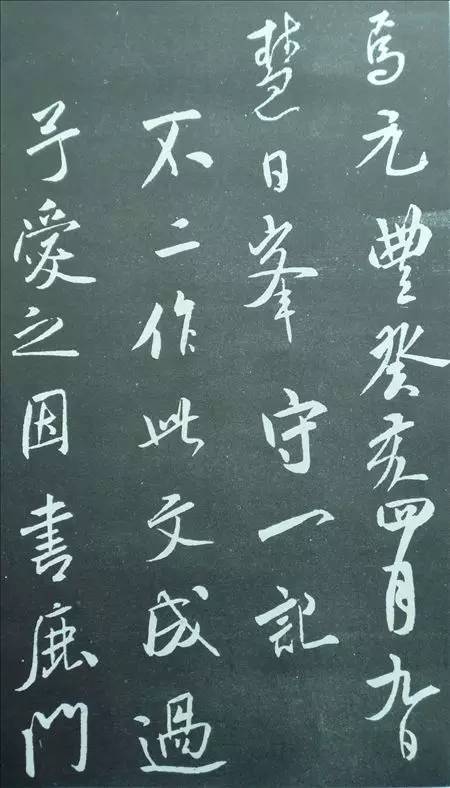 焉元豐癸亥四月九日
慧日峯守一記
不二作此文成過
予愛之因書鹿門